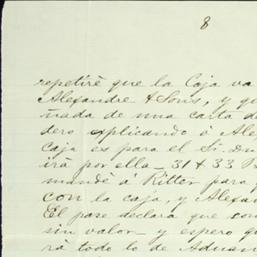 8
repetiré que la Caja va
Alexandre & Sons, y que
ñada de una carta d
dero explicando á Ale
caja es para el Sr. Du
irá por ella_ 31 & 33 B
mandé á Ritter para
con la caja, y Alexand
El pase declara que con
sin valor_ y espero qu
rá todo lo de Aduan